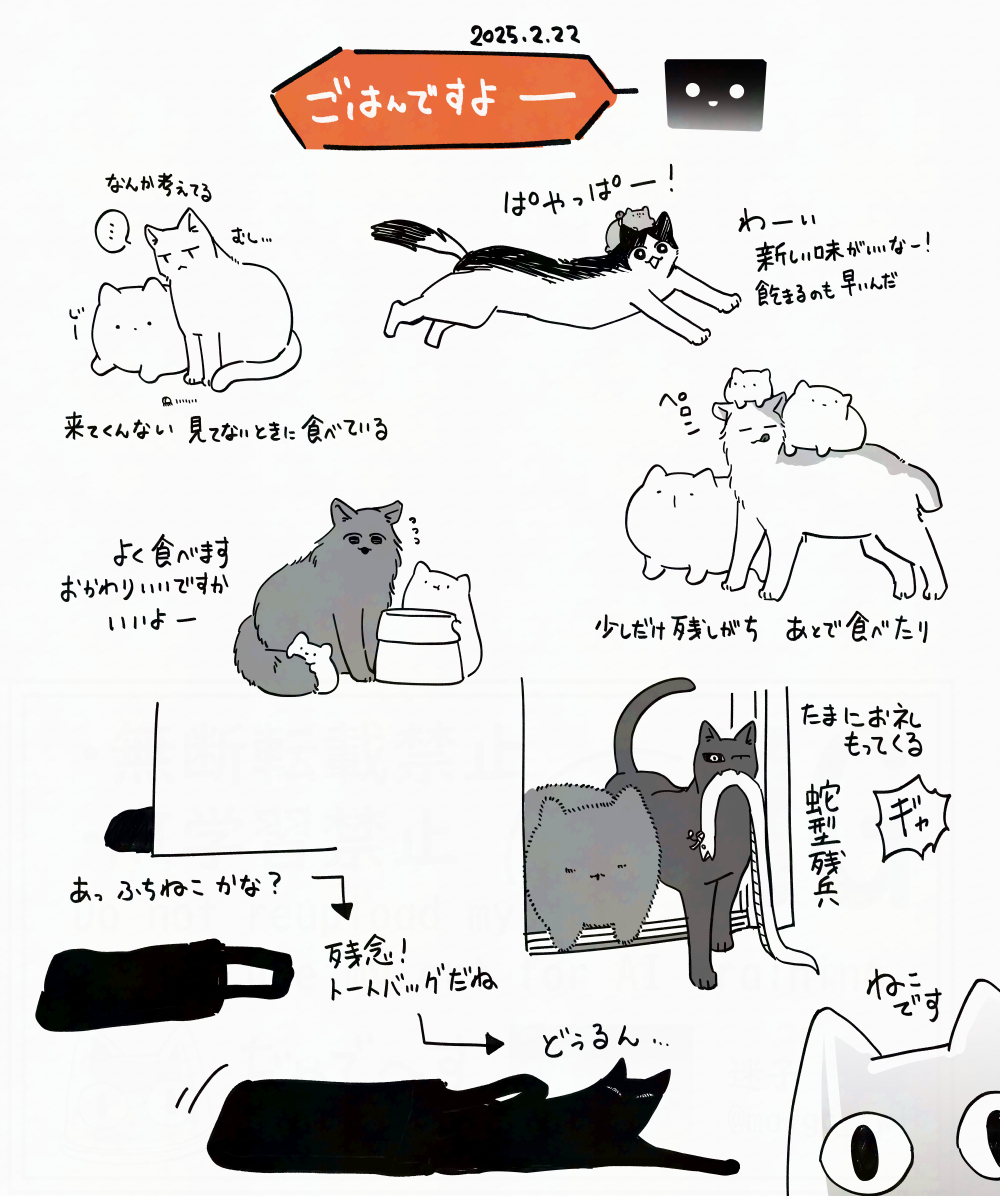 2025.2.22
ごはんですよー
なんか考えてる
むし…
じー
来てくんない 見てないときに食べている
ぱやっぱー!
わーい
新しい味がいいなー!
飽きるのも早いんだ
ペロ
少しだけ残しがち あとで食べたり
よく食べます
おかわりいいですか
いいよー
たまにお礼
もってくる
蛇型残兵
ギャ
あっ ふちねこかな?
残念!
トートバッグだね
どぅるん…
ねこ
です
・無断転載禁止
学習禁止
Do not reupload my
for AI training